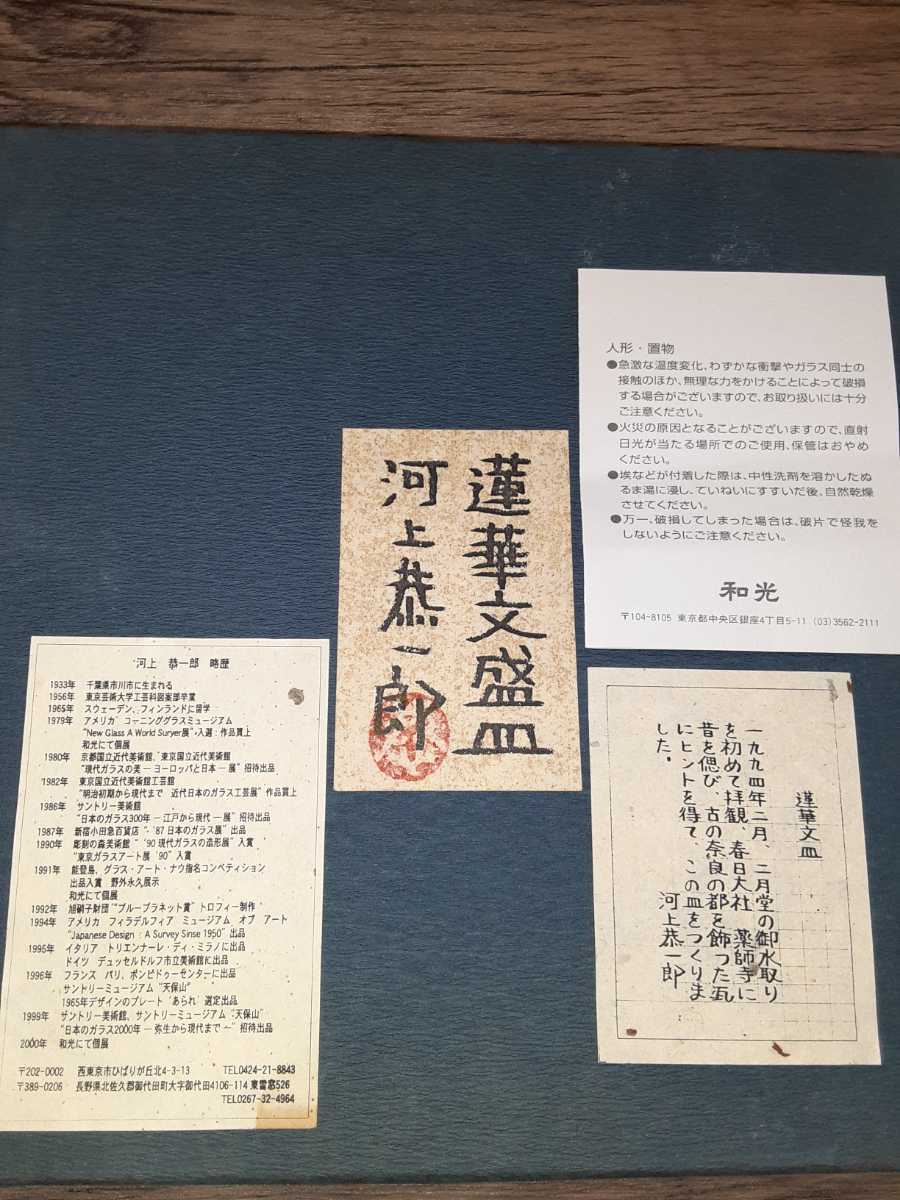 人形・置物
●急激な温度変化、わずかな衝撃やガラス同士の
接触のほか、無理な力をかけることによって破損
する場合がございますので、お取り扱いには十分
ご注意ください。
●火災の原因となることがございますので、直射
日光が当たる場所でのご使用、保管はおやめ
ください。
●埃などが付着した際は、中性洗剤を溶かしたぬ
るま湯に浸し、ていねいにすすいだ後、自然乾燥
させてください。
●万一、破損してしまった場合は、破片で怪我を
しないようにご注意ください。
和光
〒104-8105 東京都中央区銀座4丁目5-11 (03)3562-2111
蓮華文盛皿
河上恭一郎
河上 恭一郎 略歴
1933年 千葉県市川市に生まれる
1956年 東京芸術大学工芸科図案部卒業
1965年 スウェーデン、フィンランドに留学
1979年 アメリカ コーニンググラスミュージアム
"New Glass A World Suryer展"入選:作品買上
和光にて個展
1980年 京都国立近代美術館、東京国立近代美術館
"現代ガラスの美 ― ヨーロッパと日本 ― 展" 招待出品
1982年 東京国立近代美術館工芸館
"明治初期から現代まで 近代日本のガラス工芸展" 作品買上
1986年 サントリー美術館
"日本のガラス300年 ― 江戸から現代 ― 展" 招待出品
1987年 新宿小田急百貨店 "'87 日本のガラス展" 出品
1990年 彫刻の森美術館 "'90 現代ガラスの造形展" 入賞
"東京ガラスアート展 '90" 入賞
1991年 能登島、グラス・アート・ナウ指名コンペティション
出品入賞 野外永久展示
和光にて個展
1992年 旭硝子財団 "ブループラネット賞" トロフィー制作
1994年 アメリカ フィラデルフィア ミュージアム オブ アート
"Japanese Design : A Survey Sinse 1950" 出品
1995年 イタリア トリエンナーレ・ディ・ミラノに出品
ドイツ デュッセルドルフ市立美術館に出品
1996年 フランス パリ、ポンピドゥーセンターに出品
サントリーミュージアム "天保山"
1965年デザインのプレート "あられ" 選定出品
1999年 サントリー美術館、サントリーミュージアム "天保山"
"日本のガラス2000年 ― 弥生から現代まで ―" 招待出品
2000年 和光にて個展
〒202-0002 西東京市ひばりが丘北4-3-13 TEL0424-21-8843
〒389-0206 長野県北佐久郡御代田町大字御代田4106-114 東雲窓526
TEL0267-32-4964
蓮華文皿
一九九四年二月、二月堂の御水取り
を初めて拝観、春日大社 薬師寺に
昔を偲び、古の奈良の都を飾った瓦
にヒントを得て、この皿をつくりま
した。
河上恭一郎